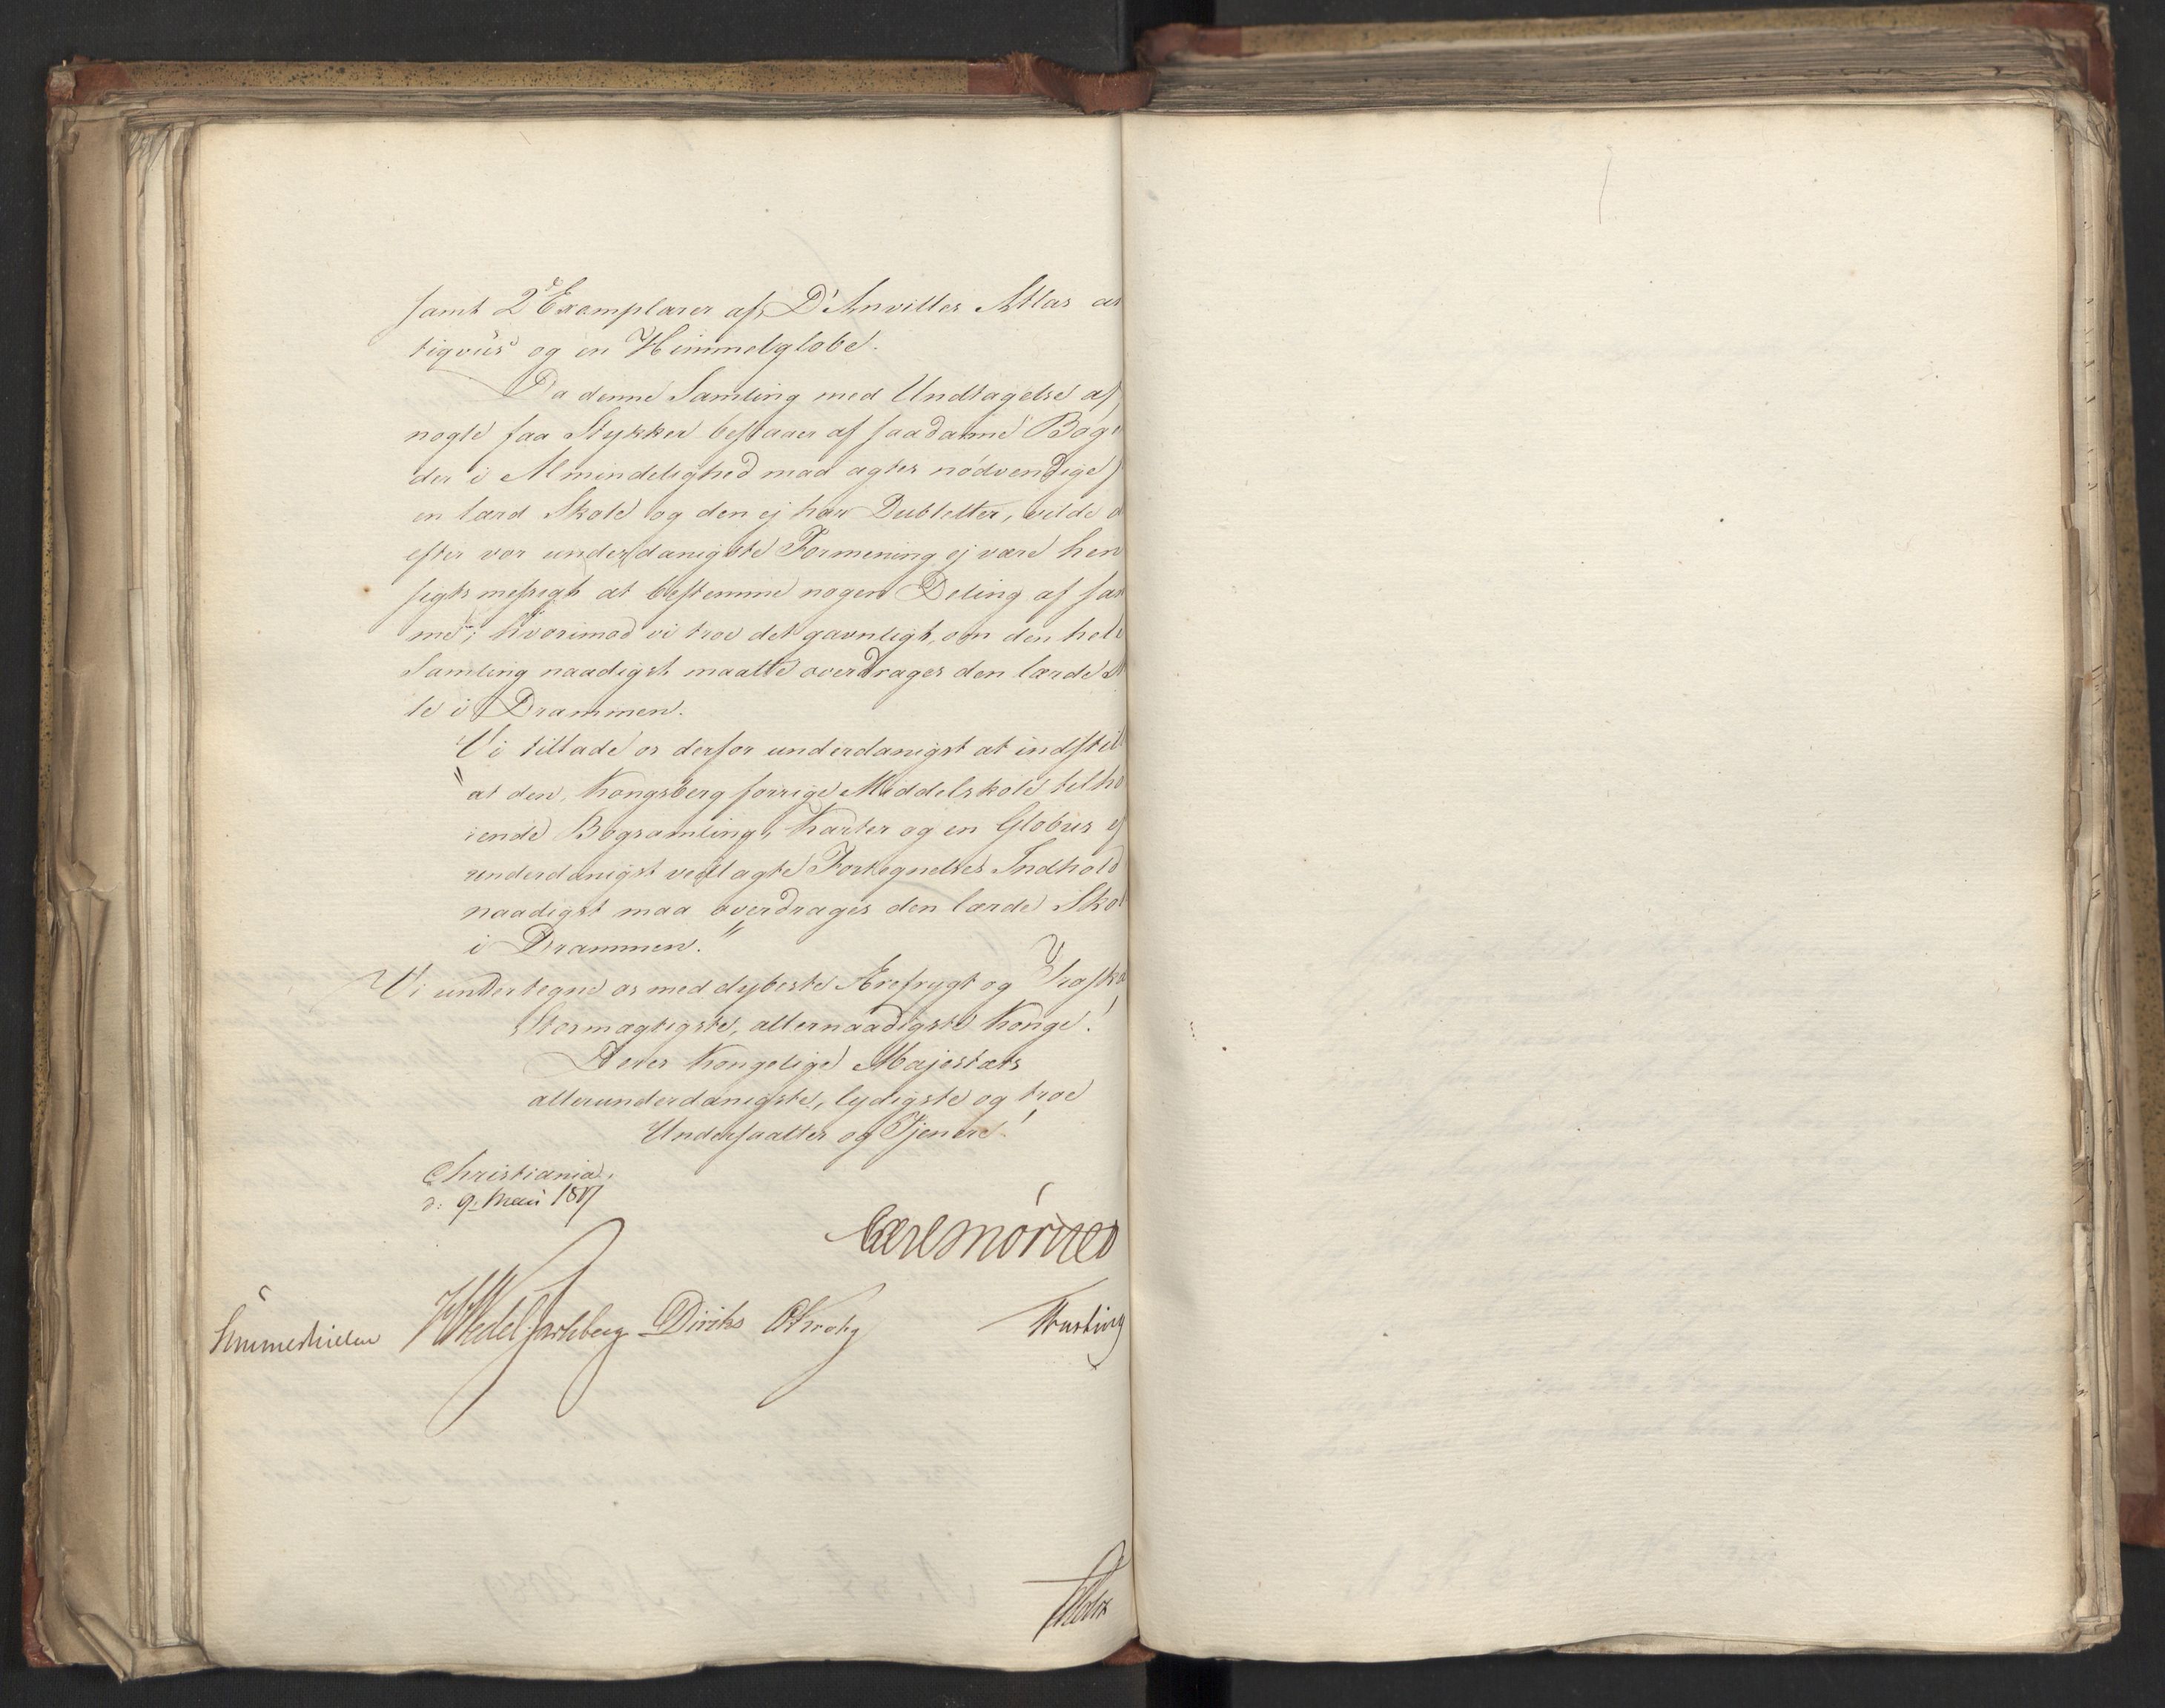 samt 2de Exemplarer af D'Anvilles Atlas an
tiqvus og en Himmelglobe.
Da denne Samling med Undtagelse af
nogle faa Stykker bestaaer af saadanne Bøg
der i Almindelighed maa agtes nødvendige f
en lærd Skole og den ej har Dubletter, vilde d
efter vor underdanigste Formening ej være hen
sigtsmessigt at bestemme nogen Deling af sam
me; hvorimod vi troe det gavnligt, om den hele
Samling naadigst maatte overdrages den lærde Sk
le i Drammen.
Vi tillade os derfor underdanigst at indstil
"at den, Kongsberg forrige Middelskole tilhø
rende Bogsamling, Karter og en Globus ef
underdanigst vedlagte Fortegnelses Indhold
naadigst maa overdrages den lærde Skol
i Drammen."
Vi undertegne os med dybeste Ærefrygt og Troska
Stormægtigste, allernaadigste Konge!
Deres Kongelige Majestæts
allerunderdanigste, lydigste og troe
Undersaatter og Tjenere!
Christiania,
d: 9. Maii 1817
Carl Mörner
Sommerhielm HWedel Jarlsberg Diriks CKrohg
Thulstrup
Holst